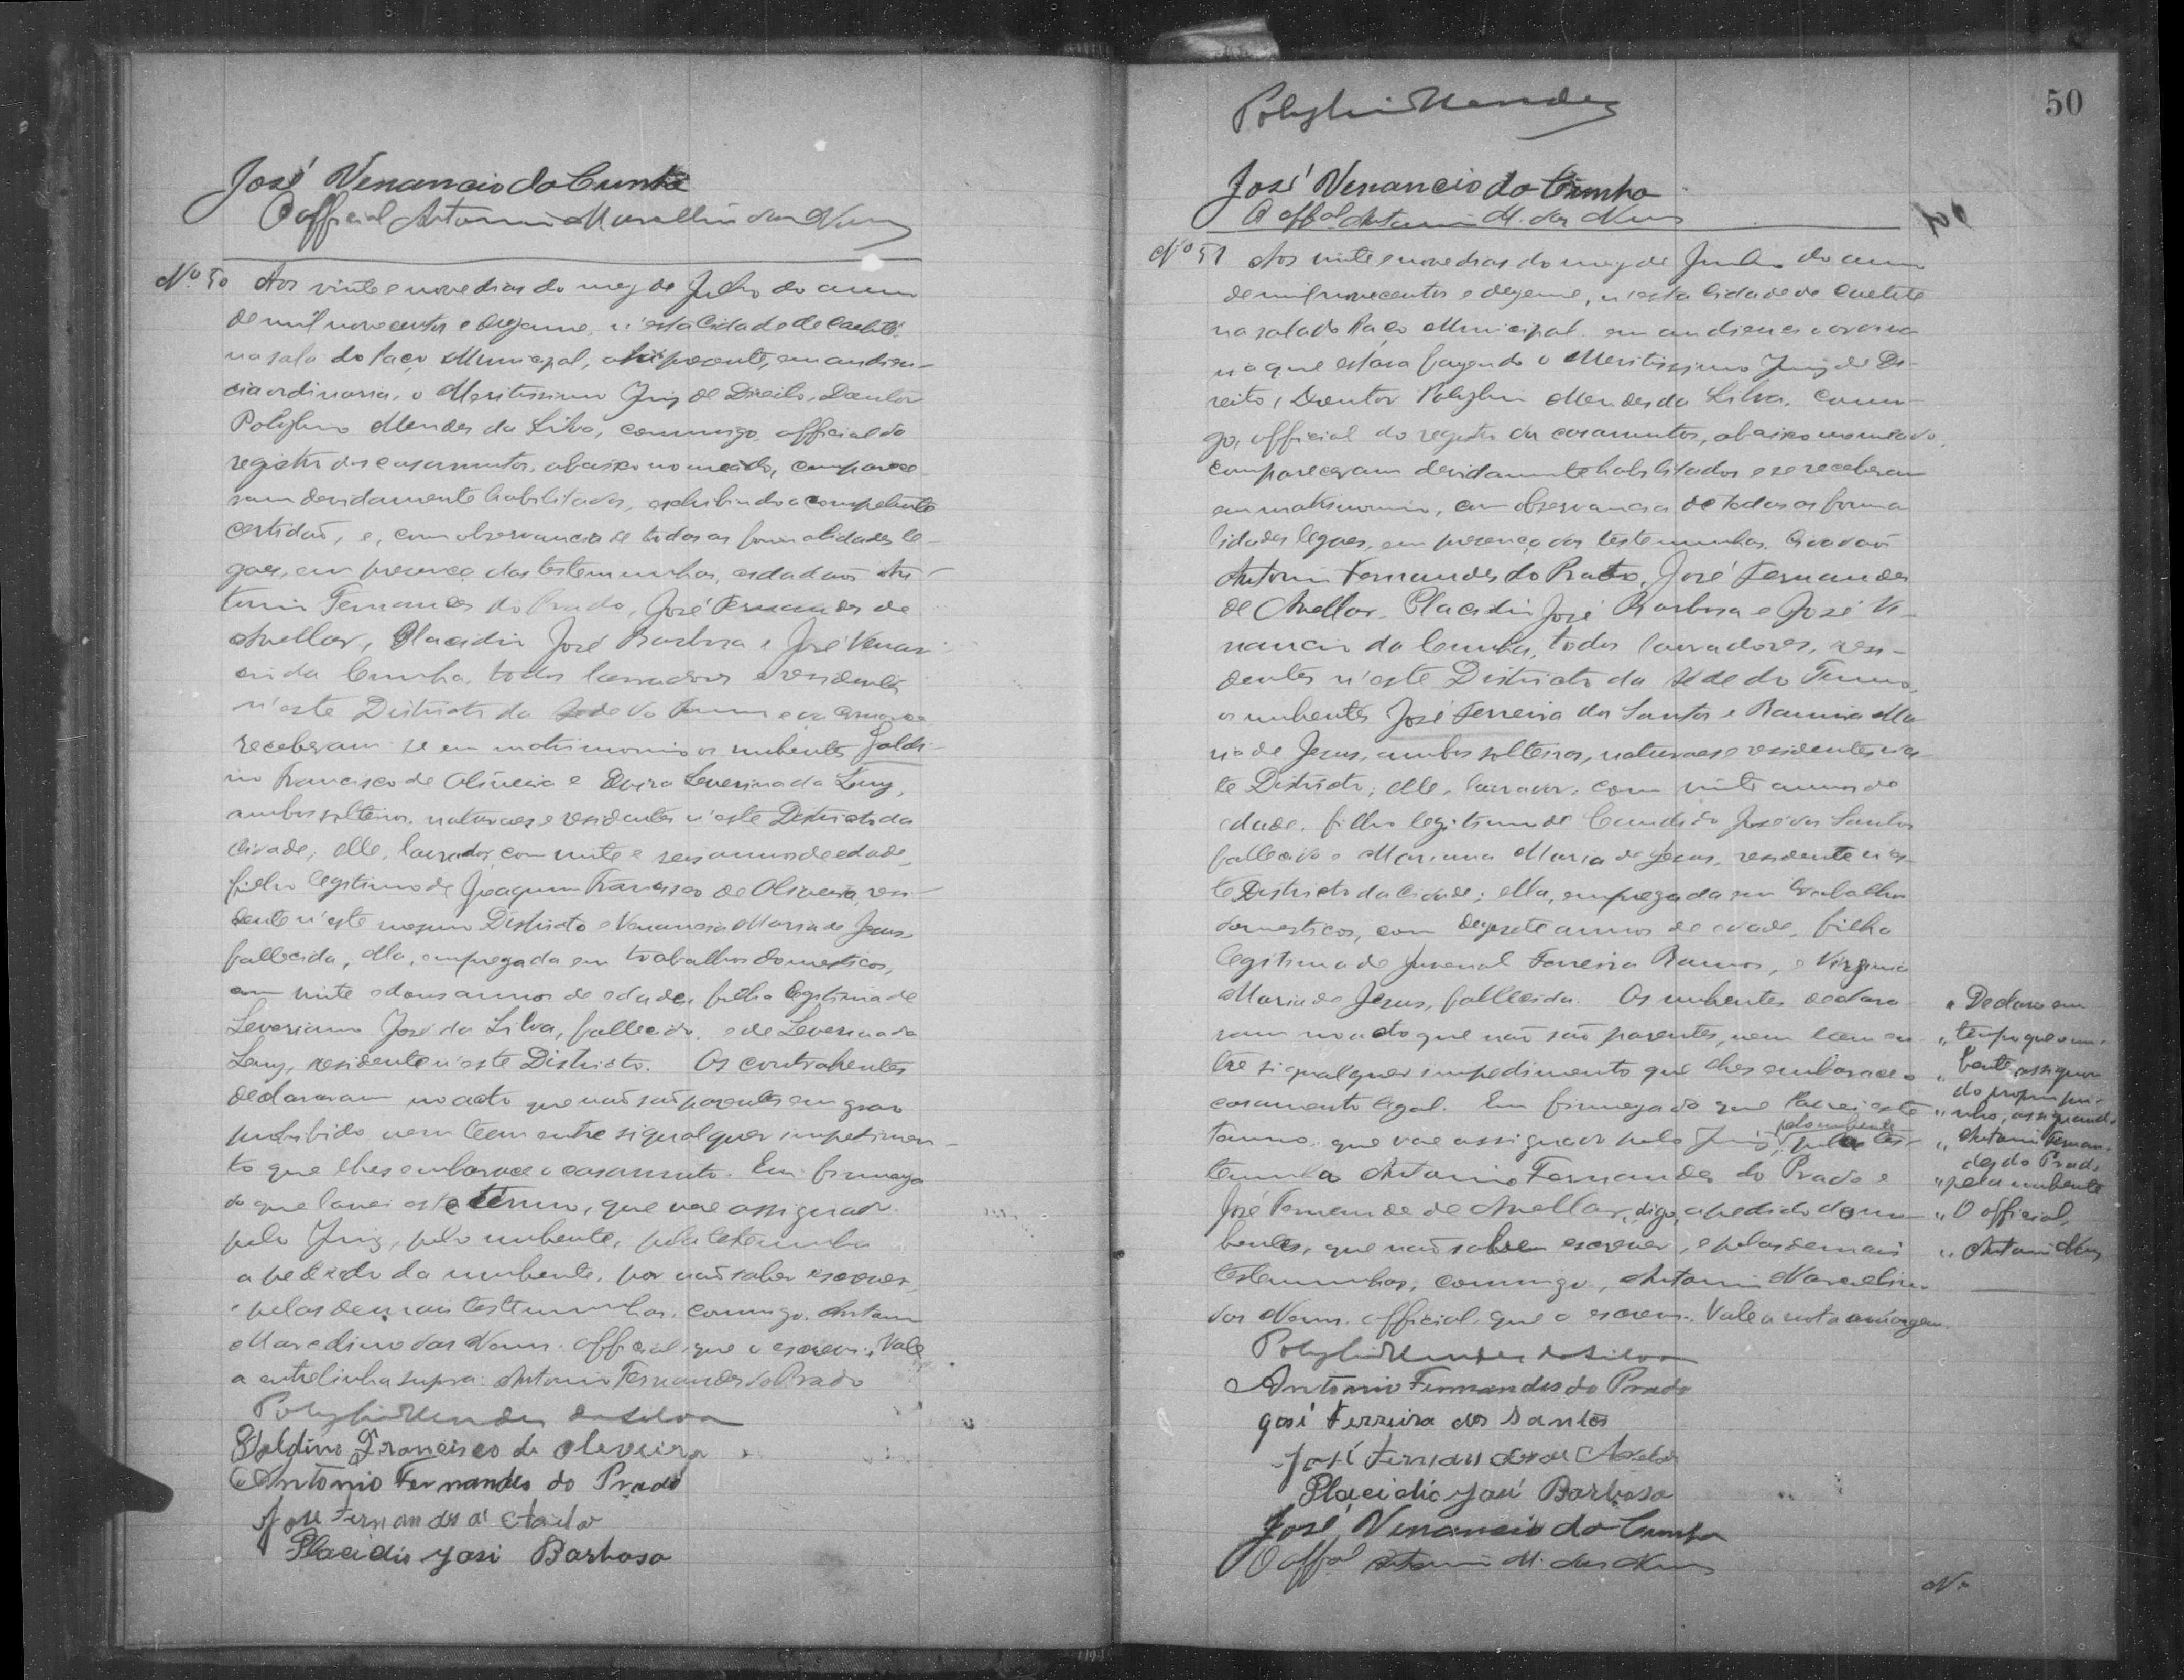 José Venancio da Cunha
O official Antonio Marcellin das Neves
Nº 50 Aos vinte e nove dias do mez de Julho do anno
de mil novecentos e dezenove, n'esta Cidade de Caeteté,
na sala do Paço Municipal, ahi presente, em audien-
cia ordinaria, o Meritissimo Juiz de Direito, Doutor
Polybio Mendes da Silva, commigo, official do
registro dos casamentos, abaixo nomeado, comparece-
ram devidamente habilitados, exhibindo a competente
certidão, e, com observancia de todas as formalidades le-
gaes, em presença das testemunhas, cidadãos An-
tonio Fernandes do Prado, José Fernandes de
Avellar, Placidio José Barbosa e José Venan-
cio da Cunha, todos lavradores e residentes
n'este Districto da séde do Termo e da Comarca
receberam-se em matrimonio os nubentes Galdi-
no Francisco de Oliveira e Severina da Luz,
ambos solteiros, naturaes e residentes n'este Districto da
Cidade; elle, lavrador, com vinte e seis annos de edade,
filho legitimo de Joaquim Francisco de Oliveira, resi-
dente n'este mesmo Districto e Venancia Maria de Jesus,
fallecida, ella, empregada em trabalhos domesticos,
com vinte e dous annos de edade, filha legitima de
Severiano José da Silva, fallecido, e de Severina da
Luz, residente n'este Districto. Os contrahentes
declararam no acto que não são parentes em grao
prohibido nem teem entre si qualquer impedimen-
to que lhes embarace o casamento. Em firmeza
do que lavrei este termo, que vae assignado
pelo Juiz, pelo nubente, pela testemunha
a pedido da nubente, por não saber escrever,
e pelas demais testemunhas, commigo, Antonio
Marcelino das Neves, official, que o escrevi. Vale
a entrelinha supra: Antonio Fernandes do Prado
Polybio Mendes da Silva
Galdino Francisco de Oleveira
Antonio Fernandes do Prado
José Fernandes
Placidio José Barbosa
50
Polybio Mendes
José Venancio da Cunha
O offal Antonio M. das Neves
Nº 51 Aos vinte e nove dias do mez de Julho do anno
de mil novecentos e dezenove, n'esta Cidade de Caeteté
na sala do Paço Municipal, em audiencia ordina-
ria que estava fazendo o Meritissimo Juiz de Di-
reito, Doutor Polybio Mendes da Silva, commi-
go, official do registro dos casamentos, abaixo nomeado,
compareceram devidamente habilitados e se receberam
em matrimonio, com observancia de todas as forma-
lidades legaes, em presença das testemunhas, cidadãos
Antonio Fernandes do Prado, José Fernandes
de Avellar, Placidio José Barbosa e José Ve-
nancio da Cunha, todos lavradores, resi-
dentes n'este Districto da séde do Termo,
os nubentes José Ferreira dos Santos e Ramira Ma-
ria de Jesus, ambos solteiros, naturaes e residentes n'es-
te Districto; elle, lavrador, com vinte annos de
edade, filho legitimo de Candido José dos Santos
fallecido e Mariana Maria de Jesus, residente n'es-
te Districto da Cidade; ella, empregada em trabalhos
domesticos, com dezesete annos de edade, filha
legitima de Juvenal Ferreira Ramos, e Virginia
Maria de Jesus, fallecida. Os nubentes declara-
ram no acto que não são parentes, nem teem en-
tre si qualquer impedimento que lhes embarace o
casamento legal. Em firmeza do que lavrei este
termo, que vae assignado pelo Juiz, pelo nubente, pela tes-
temunha Antonio Fernandes do Prado e
José Fernandes de Avellar, digo, a pedido dos nu-
bentes, que não sabem escrever, e pelas demais
testemunhas, commigo, Antonio Marcelino
das Neves, official, que o escrevi. Vale a nota a margem.
Polybio Mendes da Silva
Antonio Fernandes do Prado
José Ferreira dos Santos
José Fernandes de
Placidio José Barbosa
José Venancio da Cunha
O offal Antonio M. das Neves
" Declaro em
" tempo que o nu-
" bente assignou
do proprio pu-
" nho, assignando
" Antonio Fernan-
des do Prado
" pela nubente
" O official,
" Antonio Neves
Nº